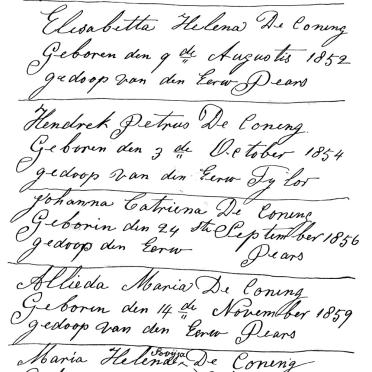 Elisabetta Helena De Coning
Geboren den 9 de Augustis 1852
gedoop van den Eerw Pears
Hendrek Petrus De Coning
Geboren den 3 de October 1854
gedoop van den Eerw Tylor
Johanna Catriena De Coning
Geborin den 24 ste September 1856
gedoop den Eerw Pears
Allieda Maria De Coning
Geboren den 14 de November 1859
gedoop van den Eerw Pears
Maria Helende De Coning